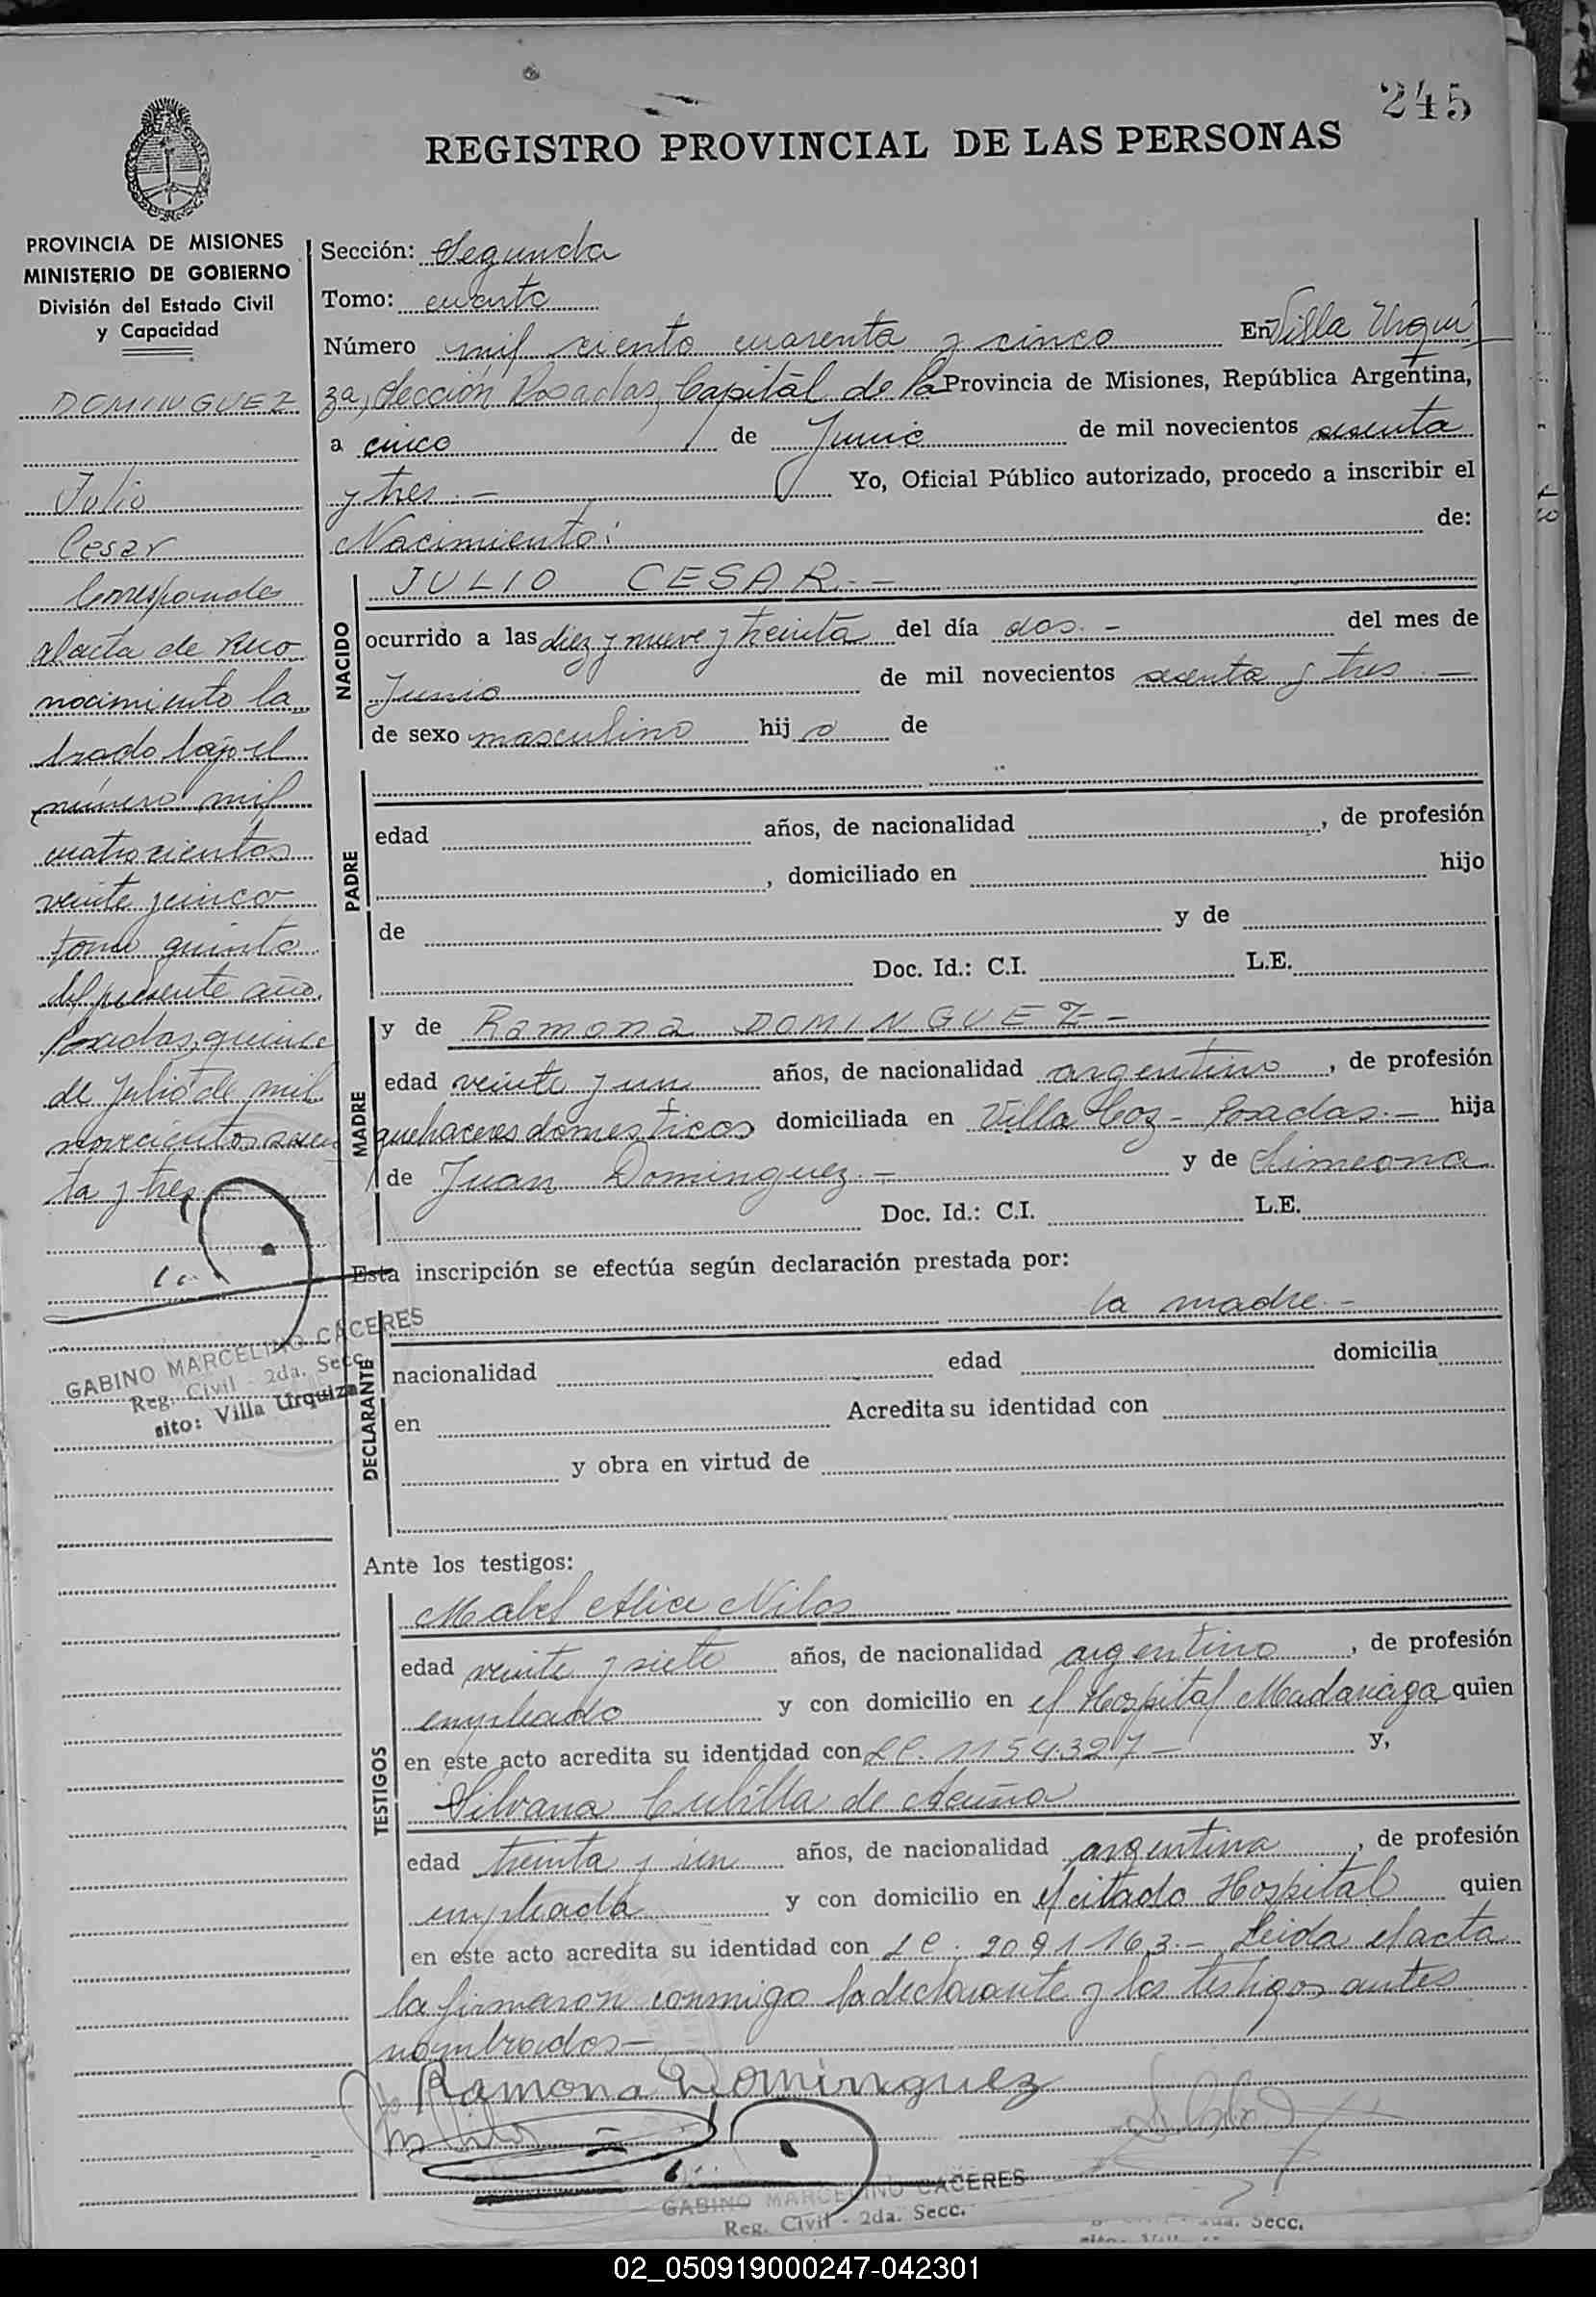 245
REGISTRO PROVINCIAL DE LAS PERSONAS
PROVINCIA DE MISIONES
MINISTERIO DE GOBIERNO
División del Estado Civil
y Capacidad
DOMINGUEZ
Julio
Cesar
Corresponde
al acta de reco
nocimiento la
brado bajo el
número mil
cuatrocientos
veinte y cinco
tomo quinto
del presente año.
Posadas, quince
de Julio de mil
novecientos sesen
ta y tres.-
GABINO MARCELINO CÁCERES
Reg. Civil - 2da. Secc.
sito: Villa Urquiza
Sección: Segunda
Tomo: cuarto
Número mil ciento cuarenta y cinco En Villa Urqui
za, Sección Posadas, Capital de la Provincia de Misiones, República Argentina,
a cinco de Junio de mil novecientos sesenta
y tres.- Yo, Oficial Público autorizado, procedo a inscribir el
Nacimiento: de:
NACIDO
JULIO CESAR.-
ocurrido a las diez y nueve y treinta del día dos.- del mes de
Junio de mil novecientos sesenta y tres.-
de sexo masculino hijo de
PADRE
edad años, de nacionalidad , de profesión
, domiciliado en hijo
de y de
Doc. Id.: C.I. L.E.
MADRE
y de Ramona DOMINGUEZ-
edad veinte y un años, de nacionalidad argentino , de profesión
quehaceres domesticos domiciliada en Villa Coz - Posadas.- hija
de Juan Dominguez.- y de Simeona
Doc. Id.: C.I. L.E.
Esta inscripción se efectúa según declaración prestada por:
DECLARANTE
la madre.-
nacionalidad edad domicilia
en Acredita su identidad con
y obra en virtud de
Ante los testigos:
TESTIGOS
Mabel Alice Nilos
edad veinte y siete años, de nacionalidad argentino , de profesión
empleado y con domicilio en el Hospital Madariaga quien
en este acto acredita su identidad con LC. 1154.327- y,
Silvana Cubilla de Acuña
edad treinta y un años, de nacionalidad argentina , de profesión
empleada y con domicilio en el citado Hospital quien
en este acto acredita su identidad con LC. 2091163.- Leida el acta
la firmaron conmigo la declarante y los testigos antes
nombrados-
Ramona Dominguez
GABINO MARCELINO CACERES
Reg. Civil - 2da. Secc.
Secc.
02_050919000247-042301